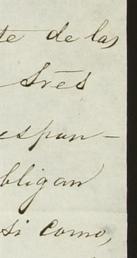 te de las
Srēs
espon-
bligan
si como,